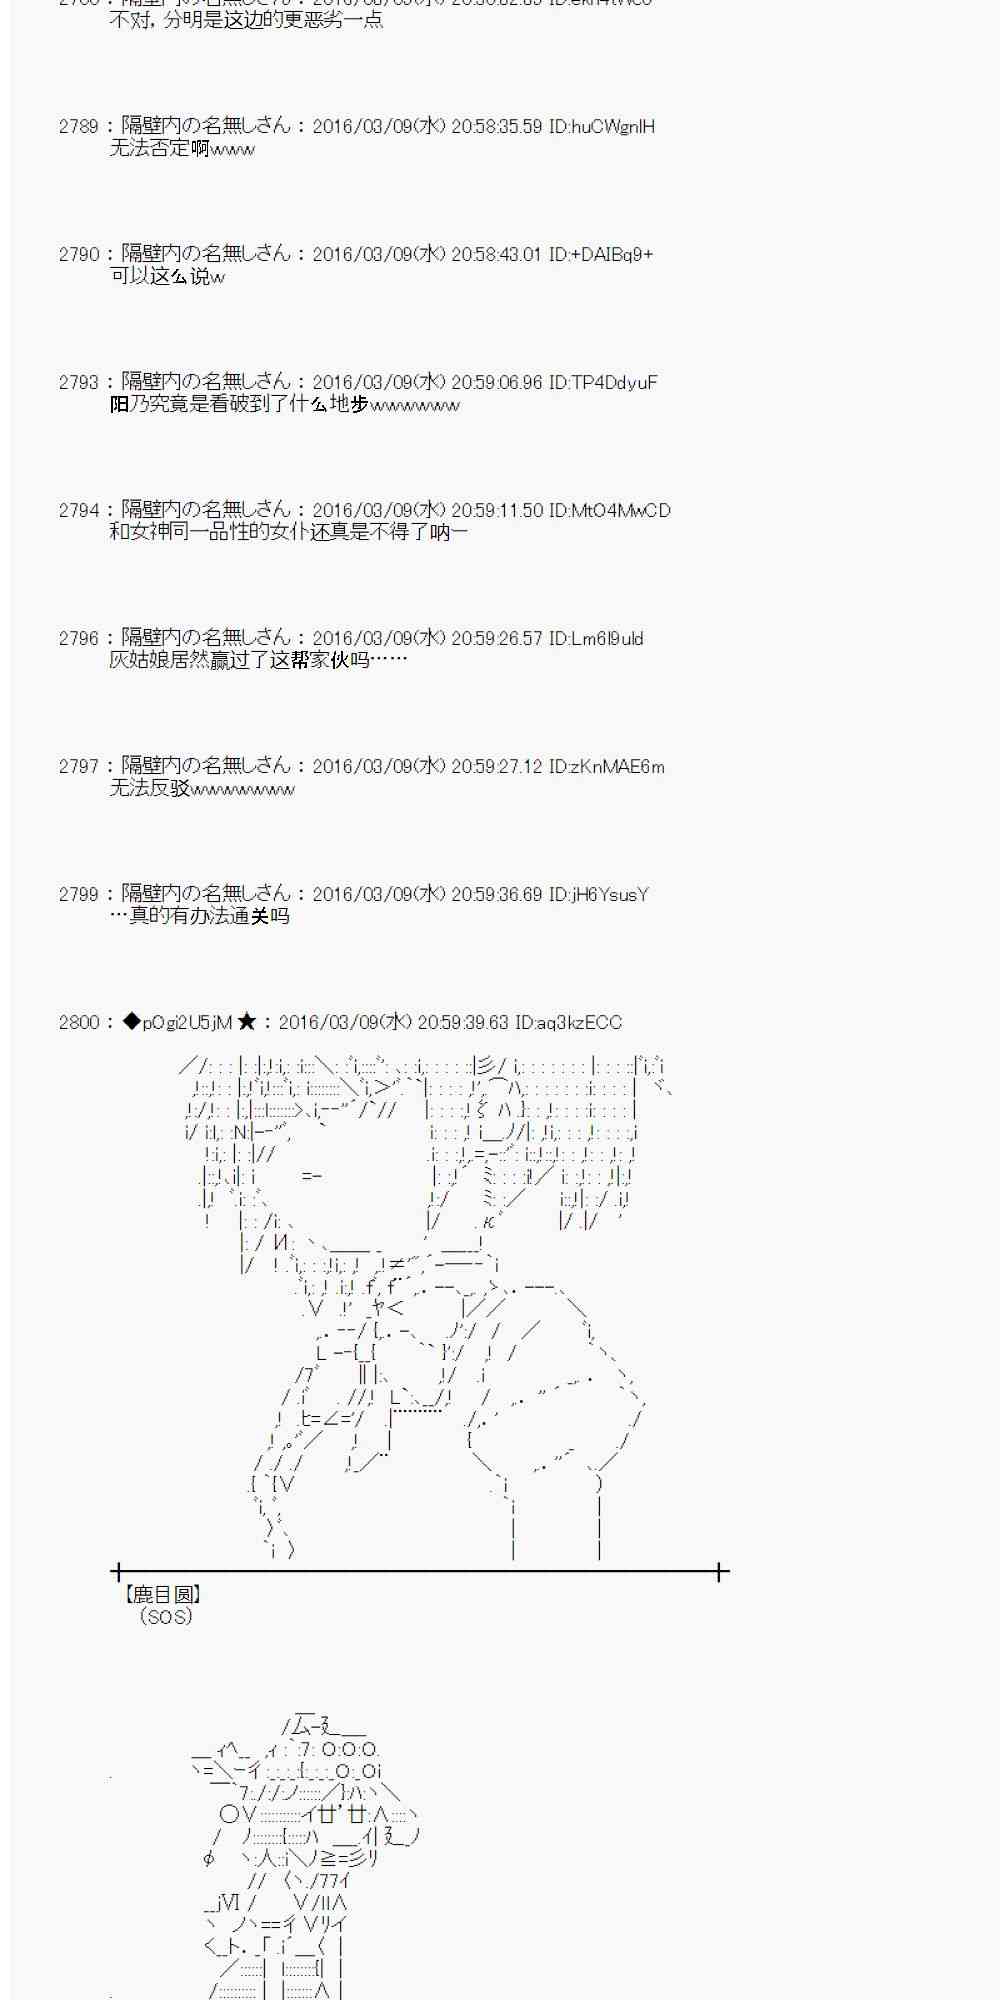 不对，分明是这边的更恶劣一点
2789 : 隔壁内の名無しさん : 2016/03/09(水) 20:58:35.59 ID:huCWgnlH
无法否定啊www
2790 : 隔壁内の名無しさん : 2016/03/09(水) 20:58:43.01 ID:+DAIBq9+
可以这么说w
2793 : 隔壁内の名無しさん : 2016/03/09(水) 20:59:06.96 ID:TP4DdyuF
阳乃究竟是看破到了什么地步wwwwww
2794 : 隔壁内の名無しさん : 2016/03/09(水) 20:59:11.50 ID:MtO4MwCD
和女神同一品性的女仆还真是不得了呐ー
2796 : 隔壁内の名無しさん : 2016/03/09(水) 20:59:26.57 ID:Lm6I9uld
灰姑娘居然赢过了这帮家伙吗……
2797 : 隔壁内の名無しさん : 2016/03/09(水) 20:59:27.12 ID:zKnMAE6m
无法反驳wwwwwww
2799 : 隔壁内の名無しさん : 2016/03/09(水) 20:59:36.69 ID:jH6YsusY
…真的有办法通关吗
2800 : ◆pOgi2U5jM ★ : 2016/03/09(水) 20:59:39.63 ID:aq3kzECC
【鹿目圆】
（SOS）